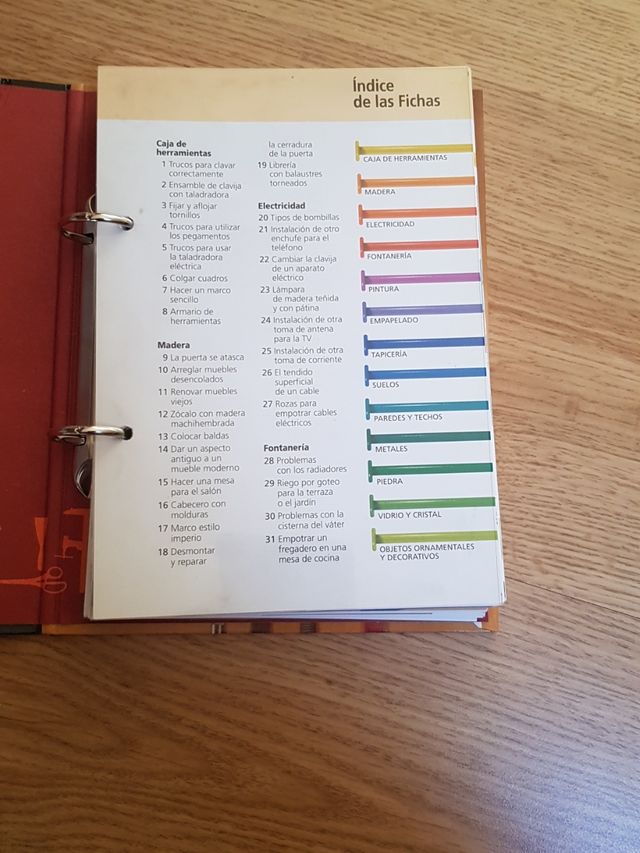 Índice
de las Fichas
Caja de
herramientas
1 Trucos para clavar
correctamente
2 Ensamble de clavija
con taladradora
3 Fijar y aflojar
tornillos
4 Trucos para utilizar
los pegamentos
5 Trucos para usar
la taladradora
eléctrica
6 Colgar cuadros
7 Hacer un marco
sencillo
8 Armario de
herramientas
Madera
9 La puerta se atasca
10 Arreglar muebles
desencolados
11 Renovar muebles
viejos
12 Zócalo con madera
machihembrada
13 Colocar baldas
14 Dar un aspecto
antiguo a un
mueble moderno
15 Hacer una mesa
para el salón
16 Cabecero con
molduras
17 Marco estilo
imperio
18 Desmontar
y reparar
la cerradura
de la puerta
19 Librería
con balaustres
torneados
Electricidad
20 Tipos de bombillas
21 Instalación de otro
enchufe para el
teléfono
22 Cambiar la clavija
de un aparato
eléctrico
23 Lámpara
de madera teñida
y con pátina
24 Instalación de otra
toma de antena
para la TV
25 Instalación de otra
toma de corriente
26 El tendido
superficial
de un cable
27 Rozas para
empotrar cables
eléctricos
Fontanería
28 Problemas
con los radiadores
29 Riego por goteo
para la terraza
o el jardín
30 Problemas con la
cisterna del váter
31 Empotrar un
fregadero en una
mesa de cocina
CAJA DE HERRAMIENTAS
MADERA
ELECTRICIDAD
FONTANERÍA
PINTURA
EMPAPELADO
TAPICERÍA
SUELOS
PAREDES Y TECHOS
METALES
PIEDRA
VIDRIO Y CRISTAL
OBJETOS ORNAMENTALES
Y DECORATIVOS